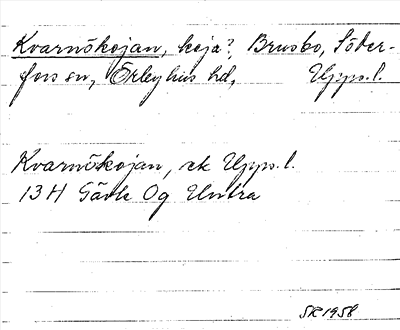 Kvarnökojan, koja?, Brusbo, Söder-
fors sn, Örbyhus hd, Upps.l.
Kvarnökojan, ek Upps.l.
13H Gävle Og Untra
SR 1958